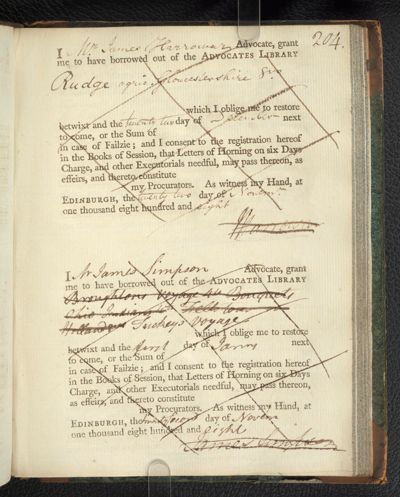 204.
I Mr James Harrower Advocate, grant
me to have borrowed out of the ADVOCATES LIBRARY
Rudge agric. Gloucestershire 8vo
which I oblige me to restore
betwixt and the twenty two day of next
to come, or the Sum of
in case of Failzie; and I consent to the registration hereof
in the Books of Session, that Letters of Horning on six Days
Charge, and other Executorials needful, may pass thereon, as
effeirs, and thereto constitute
my Procurators. As witness my Hand, at
EDINBURGH, the twenty two day of Novemr
one thousand eight hundred and eight
I Mr James Simpson Advocate, grant
me to have borrowed out of the ADVOCATES LIBRARY
Broughtons Voyage 4to Bouquets
Ohio Indians
Holland Tuckeys Voyage
which I oblige me to restore
betwixt and the first day of Janry next
to come, or the Sum of
in case of Failzie; and I consent to the registration hereof
in the Books of Session, that Letters of Horning on six Days
Charge, and other Executorials needful, may pass thereon,
as effeirs, and thereto constitute
my Procurators. As witness my Hand, at
EDINBURGH, the day of Novem
one thousand eight hundred and eight
James Simpson